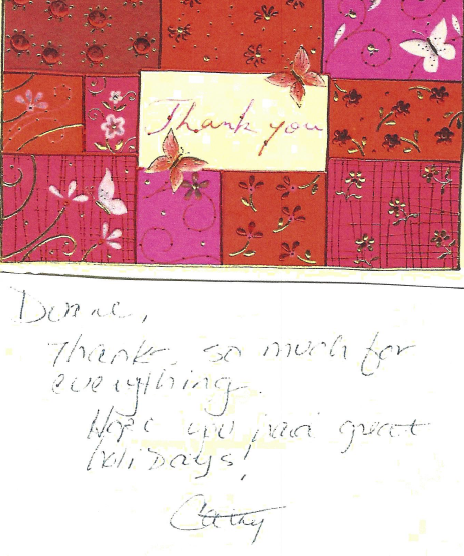 Thank you
Thanks so much for
everything.
Hope you had great
holidays!
Cathy